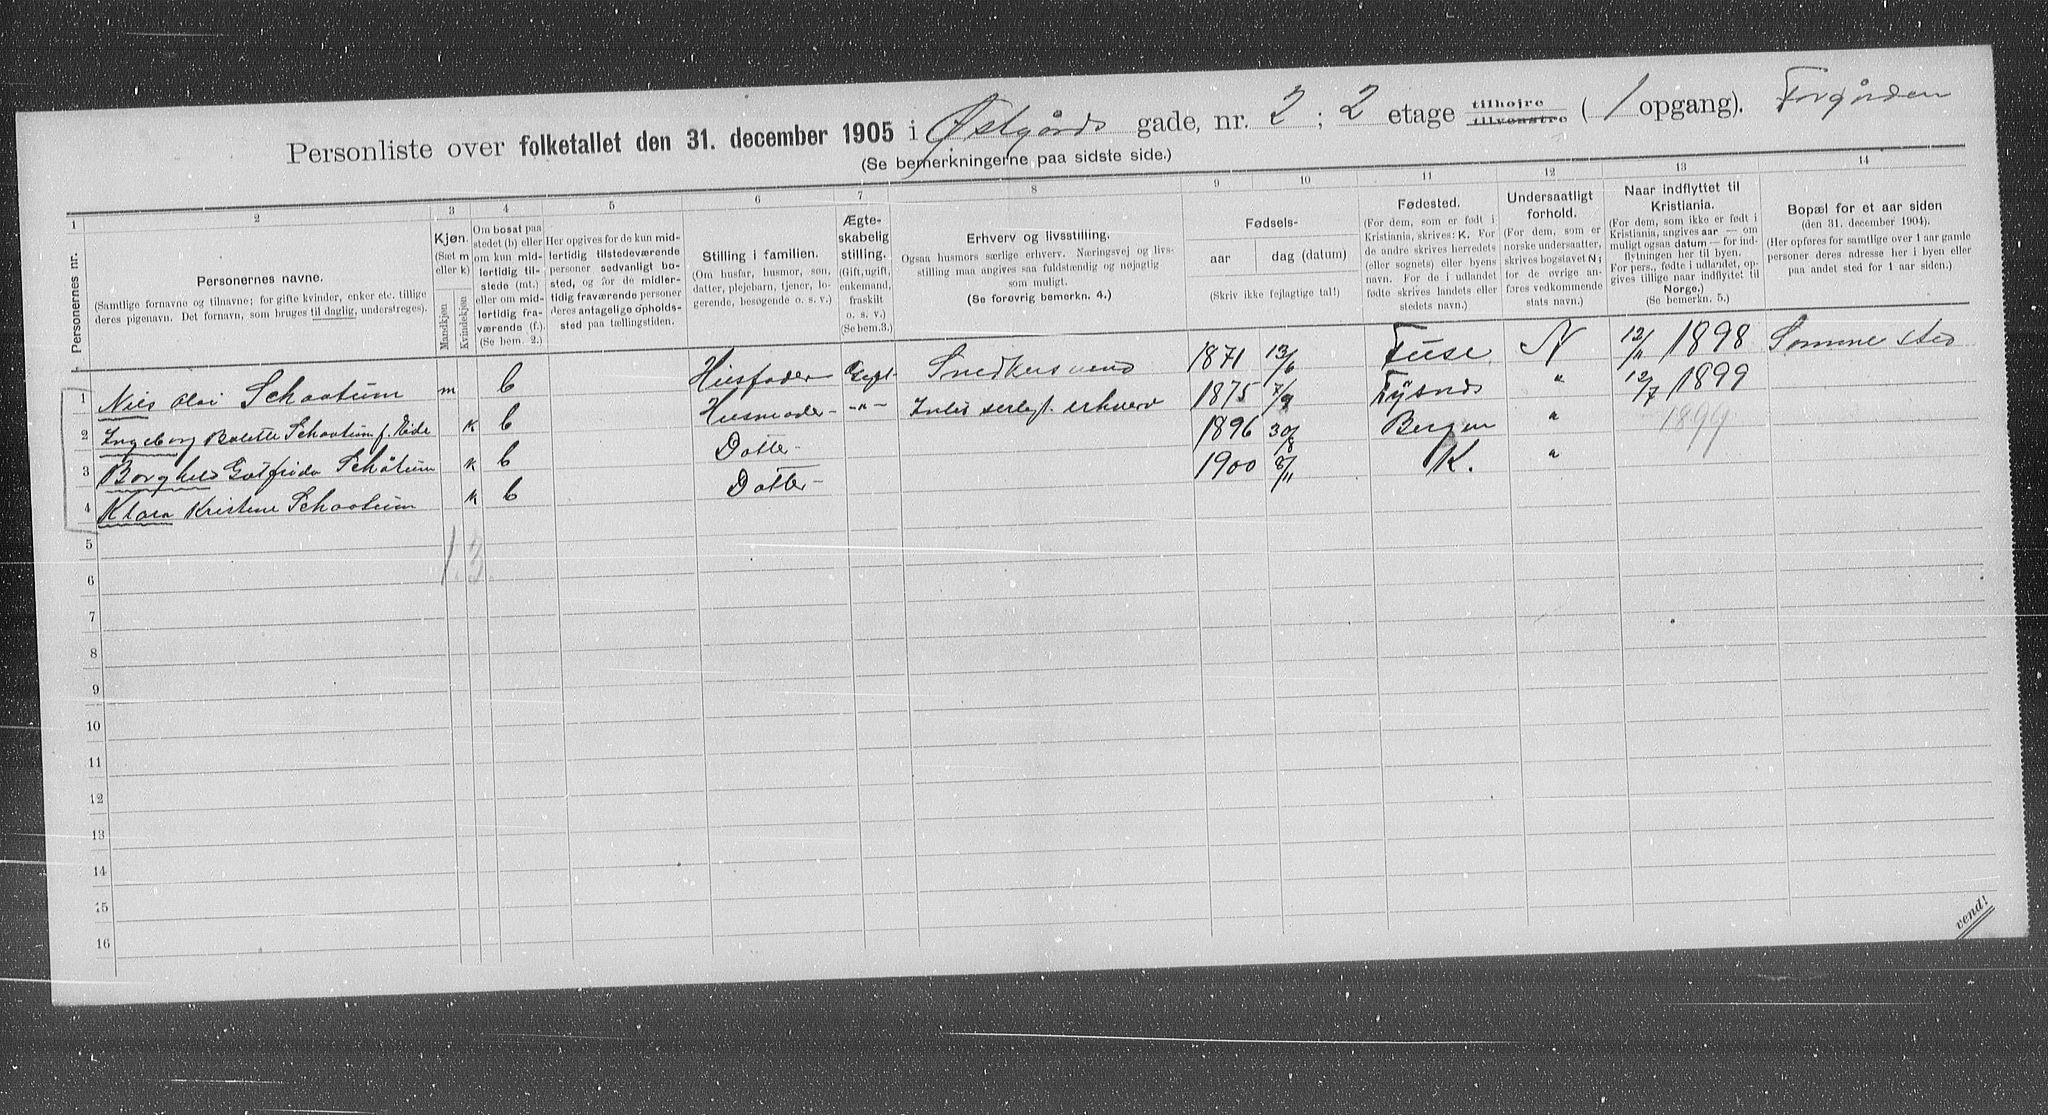 Personliste over folketallet den 31. december 1905 i Østgårds gade, nr. 2 ; 2 etage tilhøjre tilvenstre ( 1 opgang). Forgården
(Se bemerkningerne paa sidste side.)
1 2 3 4 5 6 7 8 9 10 11 12 13 14
Personernes nr.
Personernes navne.
(Samtlige fornavne og tilnavne; for gifte kvinder, enker etc. tillige
deres pigenavn. Det fornavn, som bruges til daglig, understreges).
Kjøn.
(Sæt m
eller k)
Mandkjøn
Kvindekjøn
Om bosat paa
stedet (b) eller
om kun mid-
lertidig til-
stede (mt.)
eller om mid-
lertidig fra-
værende (f.).
(Se bem. 2.)
Her opgives for de kun mid-
lertidig tilstedeværende
personer sedvanligt bo-
sted, og for de midler-
tidig fraværende personer
deres antagelige opholds-
sted paa tællingstiden.
Stilling i familien.
(Om husfar, husmor, søn,
datter, plejebarn, tjener, lo-
gerende, besøgende o. s. v.)
Ægte-
skabelig
stilling.
(Gift, ugift,
enkemand,
fraskilt
o. s. v.)
(Se bem. 3.)
Erhverv og livsstilling.
Ogsaa husmors særlige erhverv. Næringsvej og livs-
stilling maa angives saa fuldstændig og nøjagtig
som muligt.
(Se forøvrig bemerkn. 4.)
Fødsels-
aar
dag (datum)
(Skriv ikke fejlagtige tal!)
Fødested.
(For dem, som er født i
Kristiania, skrives: K. For
de andre skrives herredets
(eller sognets) eller byens
navn. For de i udlandet
fødte skrives landets eller
stedets navn.)
Undersaatligt
forhold.
(For dem, som er
norske undersaatter,
skrives bogstavet N;
for de øvrige an-
føres vedkommende
stats navn.)
Naar indflyttet til
Kristiania.
(For dem, som ikke er født i
Kristiania, angives aar — om
muligt ogsaa datum — for ind-
flytningen her til byen.
For pers., fødte i udlandet, op-
gives tillige naar indflyttet til
Norge.)
(Se bemerkn. 5.)
Bopæl for et aar siden
(den 31. december 1904).
(Her opføres for samtlige over 1 aar gamle
personer deres adresse her i byen eller
paa andet sted for 1 aar siden.)
1 Niels Olai Schaatum m b Husfader Gift Snedkersvend 1871 13/6 Fuse N 12/11 1898 Samme sted
2 Ingeborg Bolette Schaatum f. Eide k b Husmoder -"- Intet serlegt erhverv 1875 7/9 Tysnæs " 12/7 1899
3 Borghild Gotfrida Schåtum k b Datter 1896 30/8 Bergen " 1899
4 Klara Kristine Schaatum k b Datter 1900 8/11 K. "
5 1. 3.
6
7
8
9
10
11
12
13
14
15
16
vend!